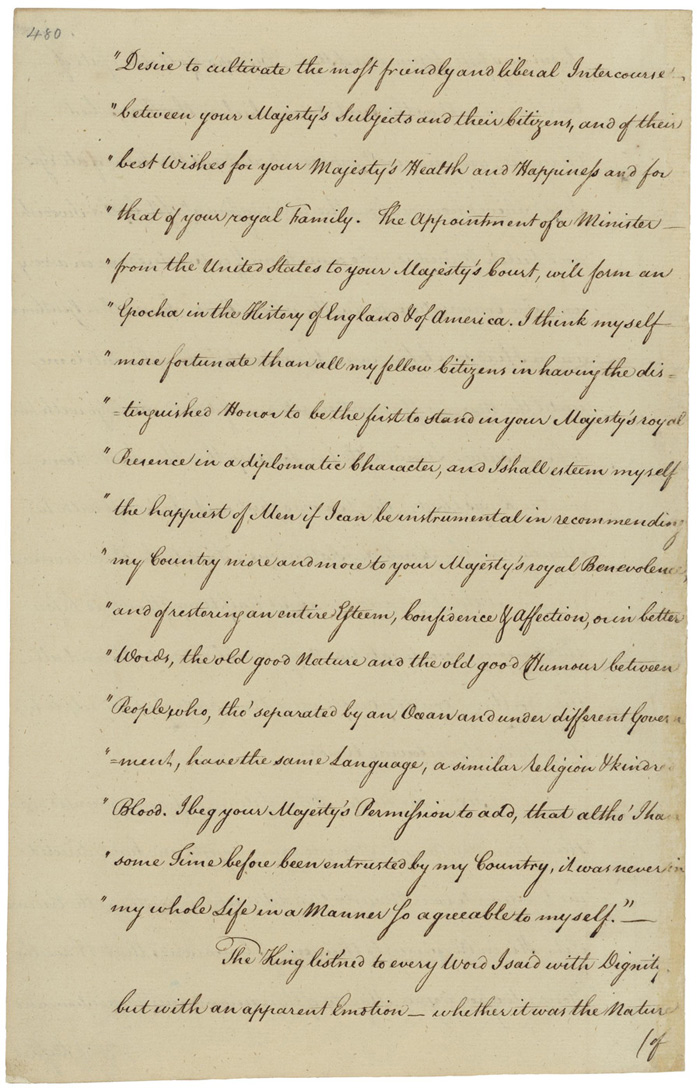 480
"Desire to cultivate the most friendly and liberal Intercourse
"between your Majesty's Subjects and their Citizens, and of their
"best Wishes for your Majesty's Health and Happiness and for
"that of your royal Family. The Appointment of a Minister —
"from the United States to your Majesty's Court, will form an
"Epocha in the History of England & of America. I think myself
"more fortunate than all my fellow Citizens in having the dis-
"=tinguished Honor to be the first to stand in your Majesty's royal
"Presence in a diplomatic Character, and I shall esteem myself
"the happiest of Men if I can be instrumental in recommending
"my Country more and more to your Majesty's royal Benevolence,
"and of restoring an entire Esteem, Confidence & Affection, or in better
"Words, the old good Nature and the old good Humour between
"People, who, tho' separated by an Ocean and under different Govern
"=ment, have the same Language, a similar Religion & kindred
"Blood. I beg your Majesty's Permission to add, that altho' I have
"some Time before been entrusted by my Country, it was never in
"my whole Life in a Manner so agreeable to myself." —
The King list'ned to every Word I said with Dignity
but with an apparent Emotion — whether it was the Nature
/of